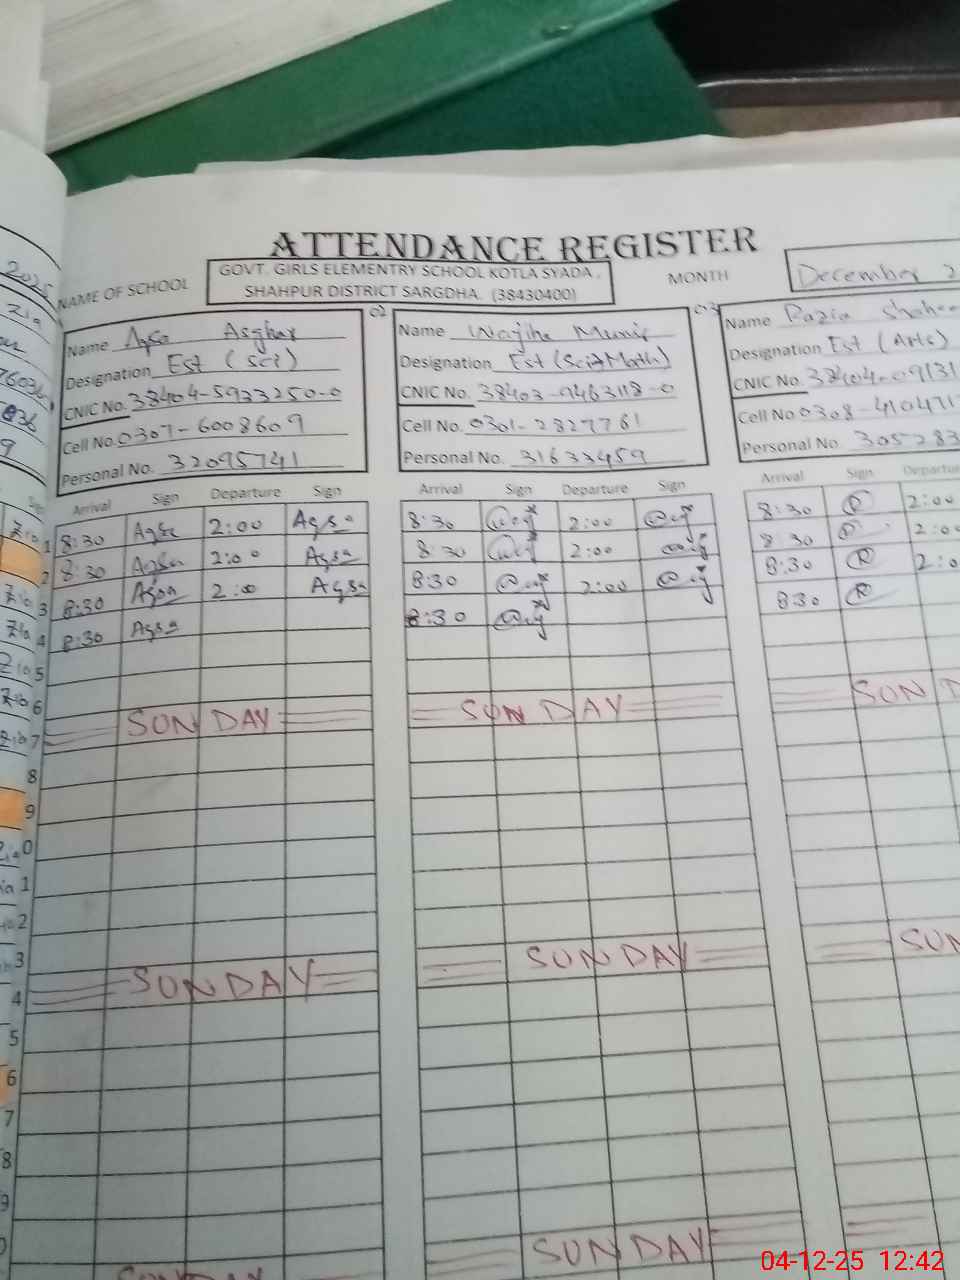 ATTENDANCE REGISTER
NAME OF SCHOOL
GOVT. GIRLS ELEMENTRY SCHOOL KOTLA SYADA ,
SHAHPUR DISTRICT SARGDHA. (38430400)
MONTH December 2
Name Aqsa Asghar
Designation Est (Sci)
CNIC No. 38404-5933250-0
Cell No. 0307-6008609
Personal No. 32095741
Arrival Sign Departure Sign
8:30 Aqsa 2:00 Aqsa
8:30 Aqsa 2:00 Aqsa
8:30 Aqsa 2:00 Aqsa
8:30 Aqsa
SUNDAY
SUNDAY
02
Name Wajiha Munir
Designation Est (Sci-Math)
CNIC No. 38403-9463118-0
Cell No. 0301-2827761
Personal No. 31633459
Arrival Sign Departure Sign
8:30 2:00
8:30 2:00
8:30 2:00
8:30
SUNDAY
SUNDAY
SUNDAY
03
Name Razia
Designation Est (Arts)
CNIC No. 38404-09131
Cell No. 0308-410471
Personal No. 305283
Arrival Sign Departu
8:30 R 2:00
8:30 R 2:0
8:30 R 2:0
8:30 R
SUND
SUN
04-12-25 12:42